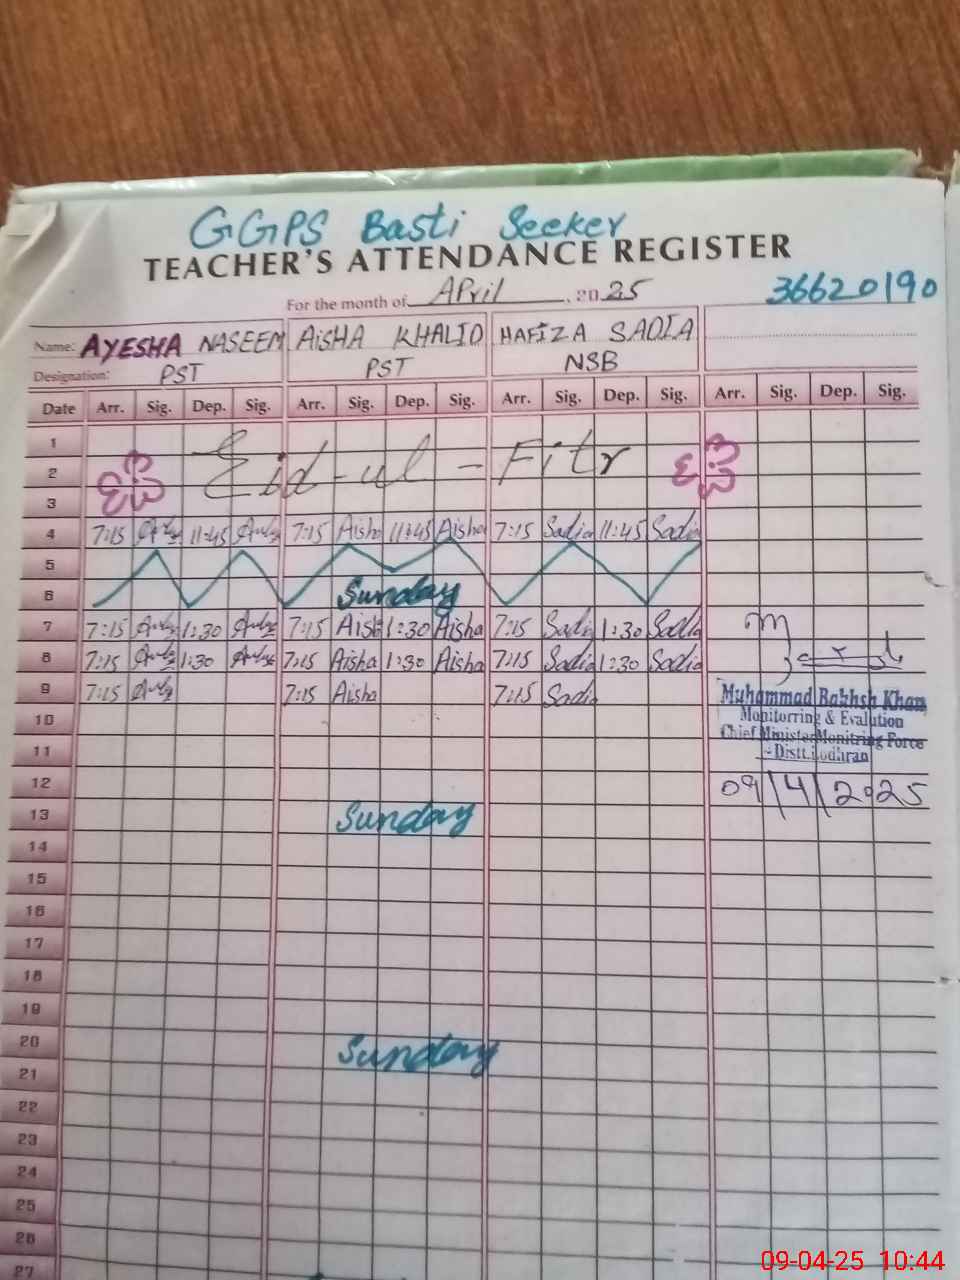 GGPS Basti Seeker
TEACHER'S ATTENDANCE REGISTER
For the month of April, 2025 36620190
Name: AYESHA NASEEM AiSHA KHALID HAFiZA SADIA
Designation: PST PST NSB
Date Arr. Sig. Dep. Sig. Arr. Sig. Dep. Sig. Arr. Sig. Dep. Sig. Arr. Sig. Dep. Sig.
1
Eid-ul-Fitr
2
3
4 7:15 11:45 7:15 Aisha 11:45 Aisha 7:15 Sadia 11:45 Sadia
5
6 Sunday
7 7:15 1:30 7:15 Aish 1:30 Aisha 7:15 Sadia 1:30 Sadia
8 7:15 1:30 7:15 Aisha 1:30 Aisha 7:15 Sadia 1:30 Sadia
9 7:15 7:15 Aisha 7:15 Sadia
Muhammad Bakhsh Khan
Monitorring & Evalution
Chief Minister Monitring Force
Distt. Lodhran
10
11
12 09/4/2025
13 Sunday
14
15
16
17
18
19
20 Sunday
21
22
23
24
25
26
27
09-04-25 10:44